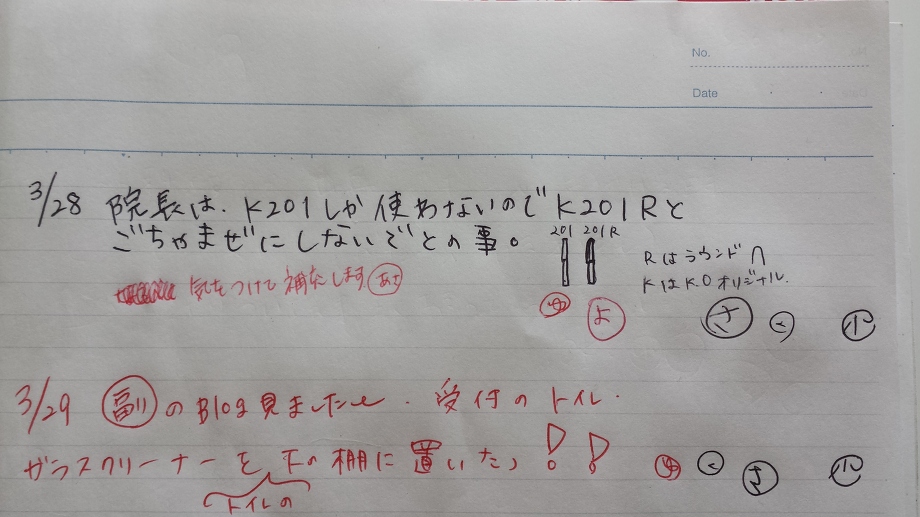 No.
Date
3/28 院長は、K201しか使わないのでK201Rと
ごちゃまぜにしないでとの事。
201 201R
Rはラウンド∩
KはK.Oオリジナル.
気をつけて補充します あさ
ゆ よ さ 小
3/29 副のBlog見ました 受付のトイレ.
ガラスクリーナーを下の棚に置いた
トイレの
ゆ さ 小